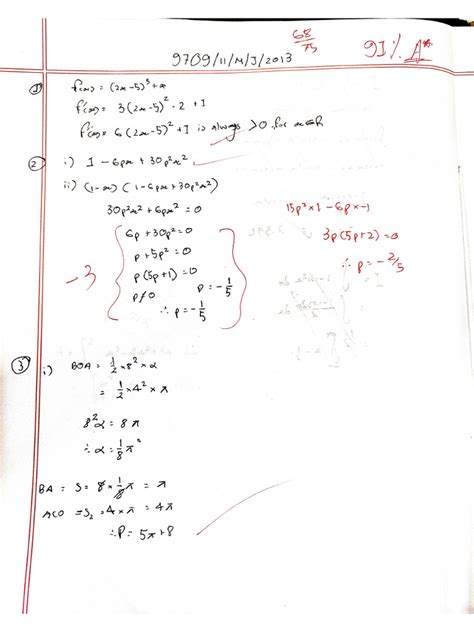 68/75
91% A*
9709/11/M/J/2013
① f(x) = (2x-5)³+x
f'(x) = 3(2x-5)²·2 + 1
f'(x) = 6(2x-5)²+1 is always >0 for x∈R
② i) 1 - 6px + 30p²x²
ii) (1-x)(1-6px+30p²x²)
30p²x²+6px² = 0
6p + 30p² = 0
p + 5p² = 0
p(5p+1) = 0
p≠0 p = -1/5
∴ p = -1/5
-3
15p²×1 - 6p×-1
3p(5p+2) = 0
∴ p = -2/5
③ i) BOA = 1/2×8²×α
= 1/2×4²×π
8²α = 8π
∴ α = 1/8π
BA = S = 8×1/8π = π
ACO = S₂ = 4×π = 4π
∴ P = 5π+8